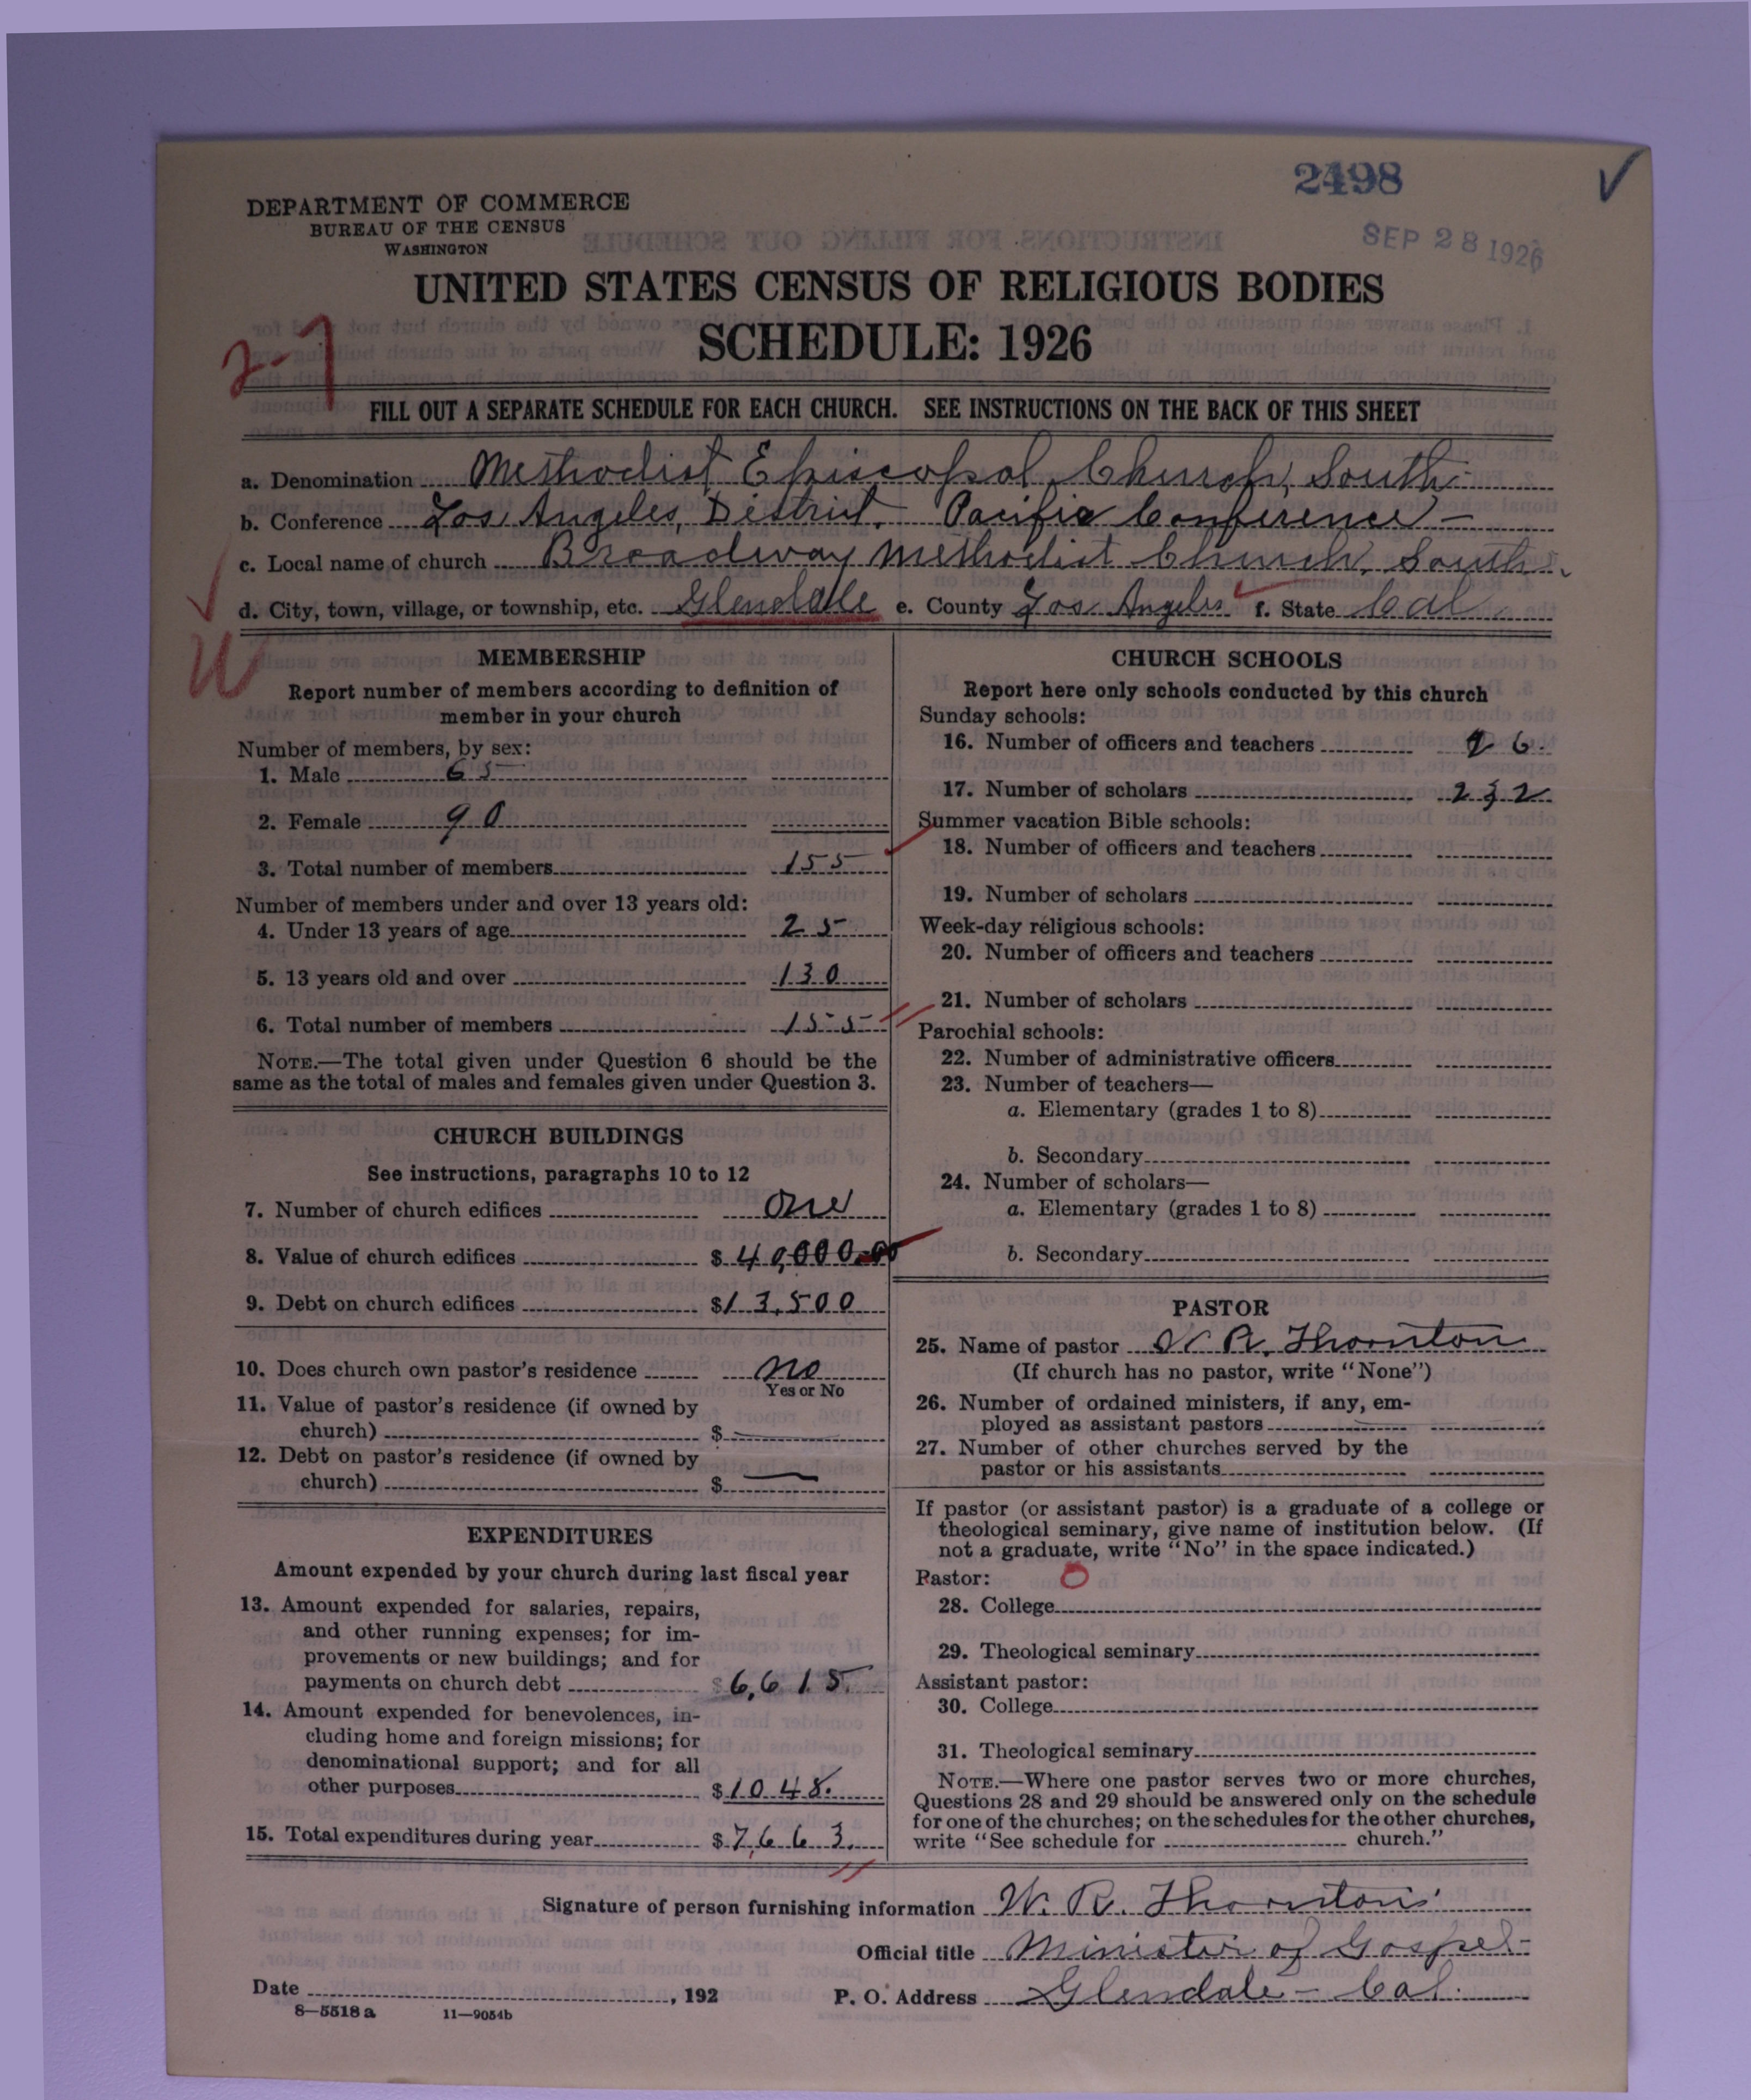 2498
SEP 28 1926
DEPARTMENT OF COMMERCE
BUREAU OF THE CENSUS
WASHINGTON
UNITED STATES CENSUS OF RELIGIOUS BODIES
SCHEDULE: 1926
2-7
FILL OUT A SEPARATE SCHEDULE FOR EACH CHURCH. SEE INSTRUCTIONS ON THE BACK OF THIS SHEET
a. Denomination Methodist Episcopal Church, South
b. Conference Los Angeles, District. Pacific Conference
c. Local name of church Broadway Methodist Church, South.
d. City, town, village, or township, etc. Glendale e. County Los Angeles f. State Cal.
W
MEMBERSHIP
Report number of members according to definition of
member in your church
Number of members, by sex:
1. Male 65
2. Female 90
3. Total number of members 155
Number of members under and over 13 years old:
4. Under 13 years of age 25
5. 13 years old and over 130
6. Total number of members 155
NOTE.—The total given under Question 6 should be the
same as the total of males and females given under Question 3.
CHURCH BUILDINGS
See instructions, paragraphs 10 to 12
7. Number of church edifices one
8. Value of church edifices $ 40,000.00
9. Debt on church edifices $ 13,500
10. Does church own pastor's residence no
Yes or No
11. Value of pastor's residence (if owned by
church) $ —
12. Debt on pastor's residence (if owned by
church) $ —
EXPENDITURES
Amount expended by your church during last fiscal year
13. Amount expended for salaries, repairs,
and other running expenses; for im-
provements or new buildings; and for
payments on church debt $ 6,615.
14. Amount expended for benevolences, in-
cluding home and foreign missions; for
denominational support; and for all
other purposes $ 1048.
15. Total expenditures during year $ 7,663.
CHURCH SCHOOLS
Report here only schools conducted by this church
Sunday schools:
16. Number of officers and teachers 26.
17. Number of scholars 232
Summer vacation Bible schools:
18. Number of officers and teachers
19. Number of scholars
Week-day religious schools:
20. Number of officers and teachers
21. Number of scholars
Parochial schools:
22. Number of administrative officers
23. Number of teachers—
a. Elementary (grades 1 to 8)
b. Secondary
24. Number of scholars—
a. Elementary (grades 1 to 8)
b. Secondary
PASTOR
25. Name of pastor W. R. Thornton
(If church has no pastor, write "None")
26. Number of ordained ministers, if any, em-
ployed as assistant pastors
27. Number of other churches served by the
pastor or his assistants
If pastor (or assistant pastor) is a graduate of a college or
theological seminary, give name of institution below. (If
not a graduate, write "No" in the space indicated.)
Pastor: O
28. College
29. Theological seminary
Assistant pastor:
30. College
31. Theological seminary
NOTE.—Where one pastor serves two or more churches,
Questions 28 and 29 should be answered only on the schedule
for one of the churches; on the schedules for the other churches,
write "See schedule for church."
Signature of person furnishing information W. R. Thornton
Official title Minister of Gospel-
Date , 192 P. O. Address Glendale - Cal.
8—5518 a 11—9054b